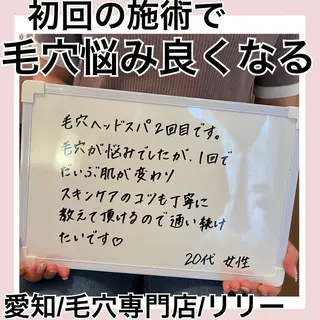 初回の施術で
毛穴悩み良くなる
毛穴ヘッドスパ2回目です。
毛穴が悩みでしたが、1回で
だいぶ肌が変わり
スキンケアのコツも丁寧に
教えて頂けるので通い続け
たいです♡
20代 女性
愛知/毛穴専門店/リリー